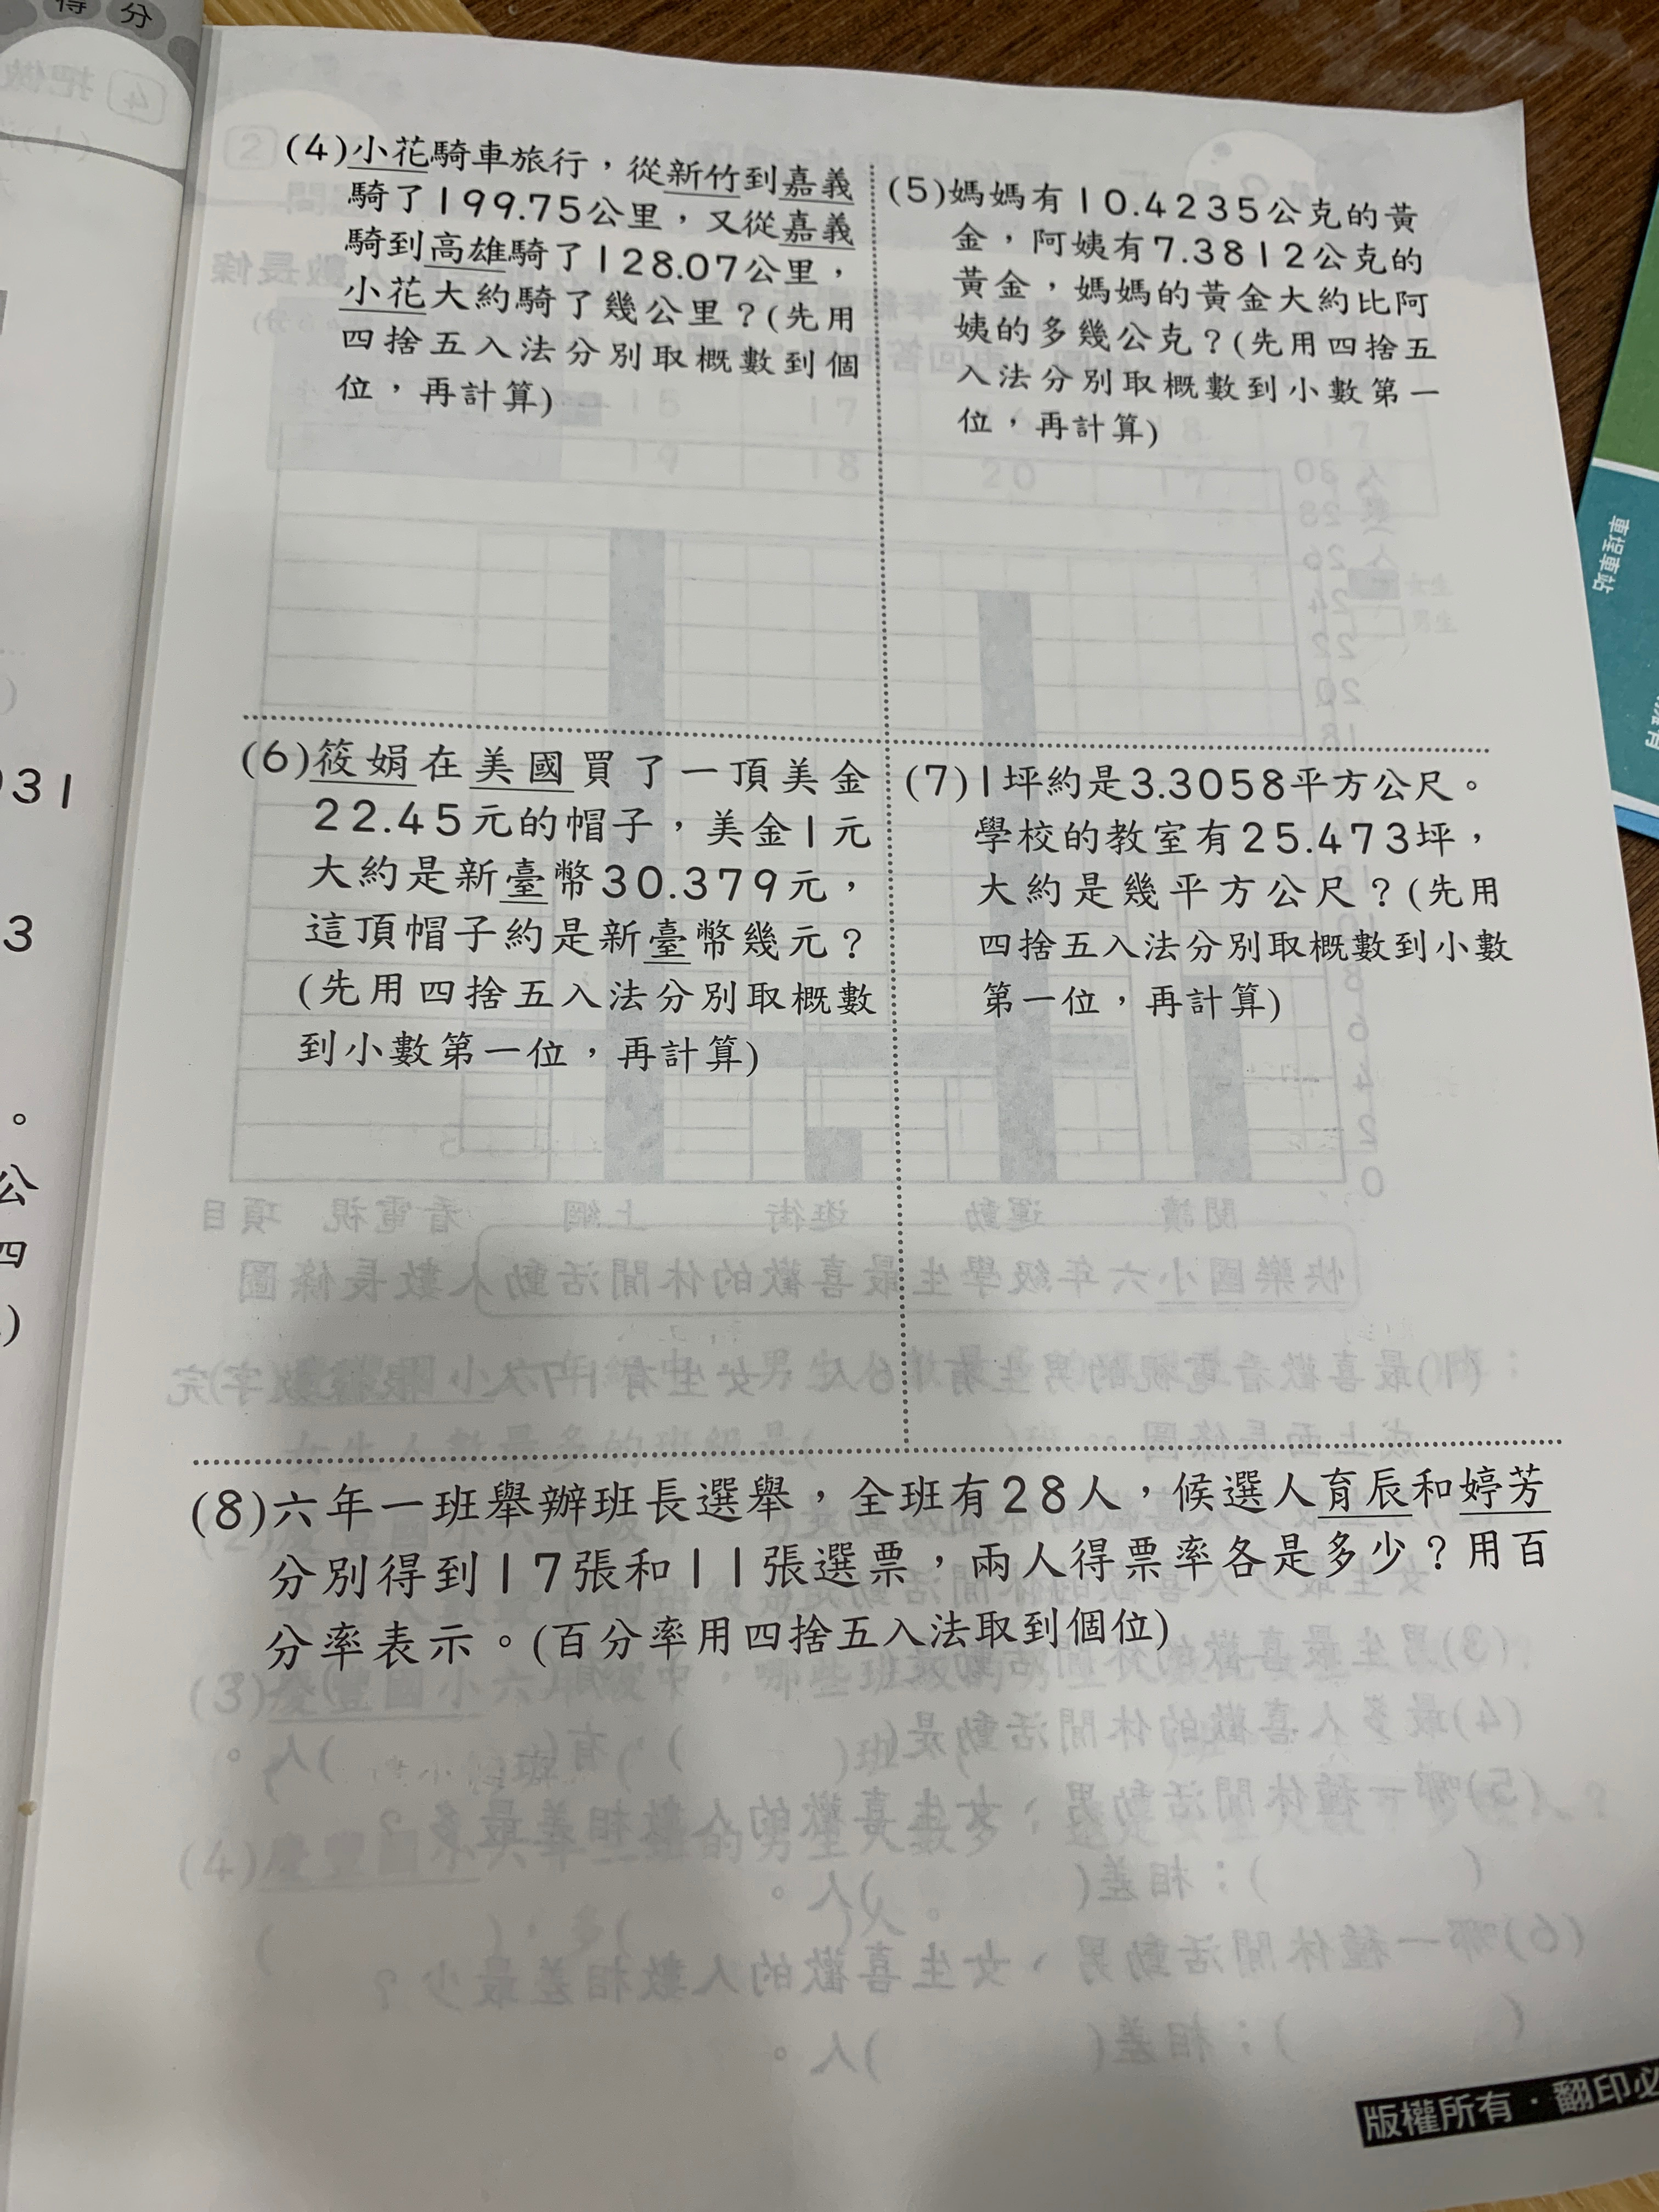 得分
(4)小花騎車旅行，從新竹到嘉義
騎了199.75公里，又從嘉義
騎到高雄騎了128.07公里，
小花大約騎了幾公里？(先用
四捨五入法分別取概數到個
位，再計算)
(5)媽媽有10.4235公克的黃
金，阿姨有7.3812公克的
黃金，媽媽的黃金大約比阿
姨的多幾公克？(先用四捨五
入法分別取概數到小數第一
位，再計算)
(6)筱娟在美國買了一頂美金
22.45元的帽子，美金1元
大約是新臺幣30.379元，
這頂帽子約是新臺幣幾元？
(先用四捨五入法分別取概數
到小數第一位，再計算)
(7)1坪約是3.3058平方公尺。
學校的教室有25.473坪，
大約是幾平方公尺？(先用
四捨五入法分別取概數到小數
第一位，再計算)
(8)六年一班舉辦班長選舉，全班有28人，候選人育辰和婷芳
分別得到17張和11張選票，兩人得票率各是多少？用百
分率表示。(百分率用四捨五入法取到個位)
31
3
。
公
四
)
車埕車站
版權所有·翻印必